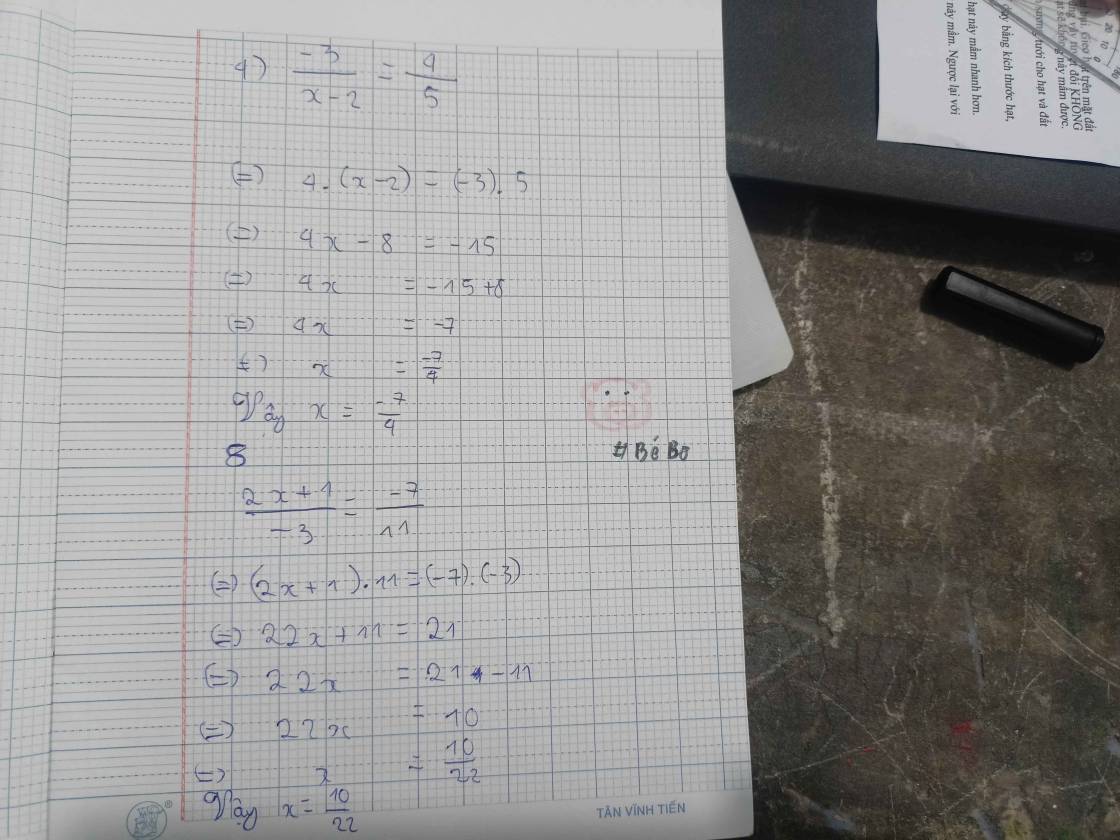 4) -3/(x-2) = 4/5
(=) 4.(x-2) = (-3).5
(=) 4x - 8 = -15
(=) 4x = -15+8
(=) 4x = -7
(=) x = -7/4
Vậy x = -7/4
8
(2x+1)/-3 = -7/11
(=) (2x+1).11 = (-7).(-3)
(=) 22x+11 = 21
(=) 22x = 21 - 11
(=) 22x = 10
(=) x = 10/22
Vậy x = 10/22
# Bé Bo
TÂN VĨNH TIẾN
hạt trên mặt đất
đối KHÔNG
này mầm được.
tưới cho hạt và đất
bằng kích thước hạt,
hạt nảy mầm nhanh hơn.
nảy mầm. Ngược lại với
20
10
0